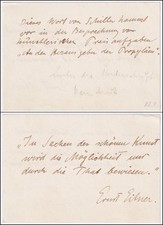 Dieses Wort von Schiller kommt
vor in der Besprechung von
künstlerischer Preisaufgaben
„An der Herausgeber der Propyläen".
„In Sachen der schönen Kunst
wird die Möglichkeit nur
durch die That bewiesen."
Ernst Eitner